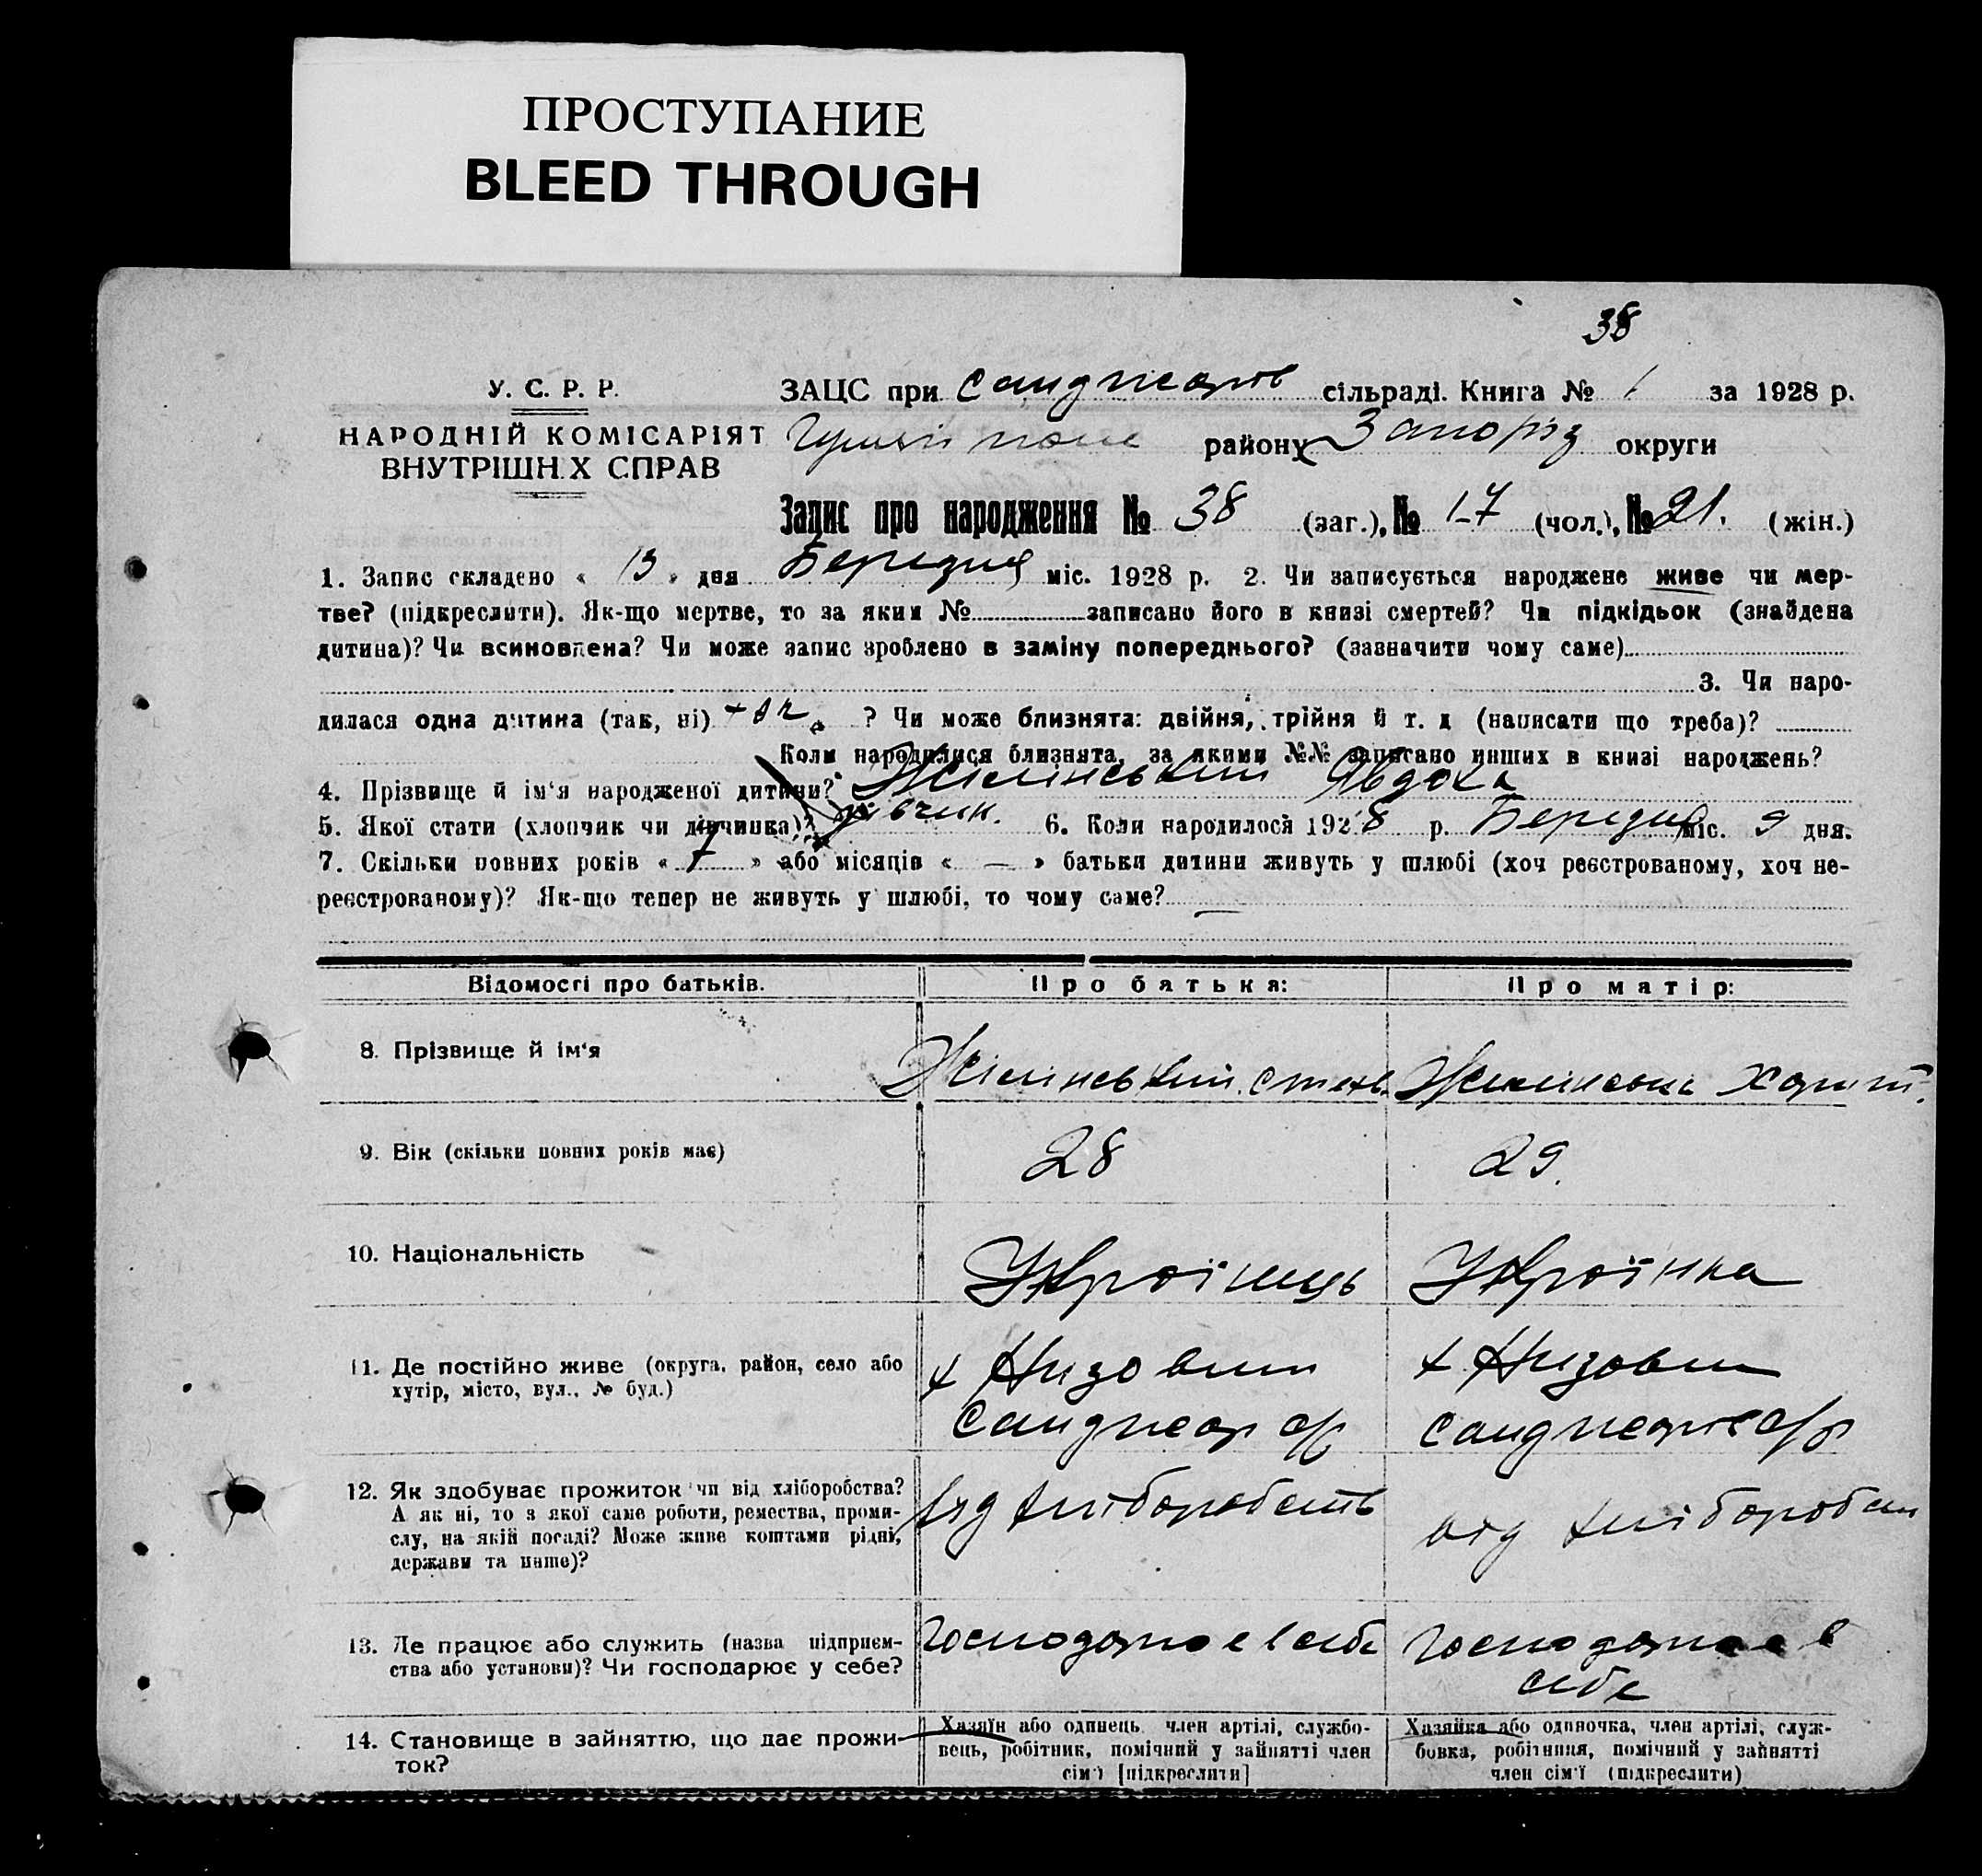 ПРОСТУПАНИЕ
BLEED THROUGH
38
У. С. Р. Р.
НАРОДНІЙ КОМІСАРІЯТ
ВНУТРІШН.Х СПРАВ
ЗАЦС при Санджарів сільраді. Книга № 1 за 1928 р.
Гуляй поле району Запоріз округи
Запис про народження № 38 (заг.), № 17 (чол.), № 21. (жін.)
1. Запис складено « 13 » дня Березня міс. 1928 р. 2. Чи записується народжене живе чи мер-
тве? (підкреслити). Як-що мертве, то за яким № записано його в книзі смертей? Чи підкідьок (знайдена
дитина)? Чи всиновлена? Чи може запис зроблено в заміну попереднього? (зазначити чому саме)
3. Чи наро-
дилася одна дитина (так, ні) так ? Чи може близнята: двійня, трійня й т. д (написати що треба)?
Коли народилися близнята, за якими №№ записано инших в книзі народжень?
4. Прізвище й ім'я народженої дитини? Жилінський Явдоха
5. Якої стати (хлопчик чи дівчинка)? дівчин. 6. Коли народилося 1928 р. Березня міс. 9 дня.
7. Скільки повних років « 7 » або місяців « — » батьки дитини живуть у шлюбі (хоч реєстрованому, хоч не-
реєстрованому)? Як-що тепер не живуть у шлюбі, то чому саме? —
Відомості про батьків. Про батька: Про матір:
8. Прізвище й ім'я Жілінський Жилінська Харит.
9. Вік (скільки повних років має) 28 29.
10. Національність Украінець Украінка
11. Де постійно живе (округа, район, село або
хутір, місто, вул., № буд.)
х Низовий х Низовий
Санджар с/р Санджарів с/р
12. Як здобуває прожиток чи від хліборобства?
А як ні, то з якої саме роботи, ремества, проми-
слу, на якій посаді? Може живе коштами рідні,
держави та инше)?
від хліборобств від хліборобств
13. Де працює або служить (назва підприєм-
ства або установи)? Чи господарює у себе?
Господарює в себе Господарює в
себе
14. Становище в зайняттю, що дає прожи-
ток?
Хазяїн або одинець член артілі, службо-
вець, робітник, помічний у зайнятті член
сім'ї [підкреслити]
Хазяйка або одиночка, член артілі, служ-
бовка, робітниця, помічний у зайнятті
член сім'ї (підкреслити)